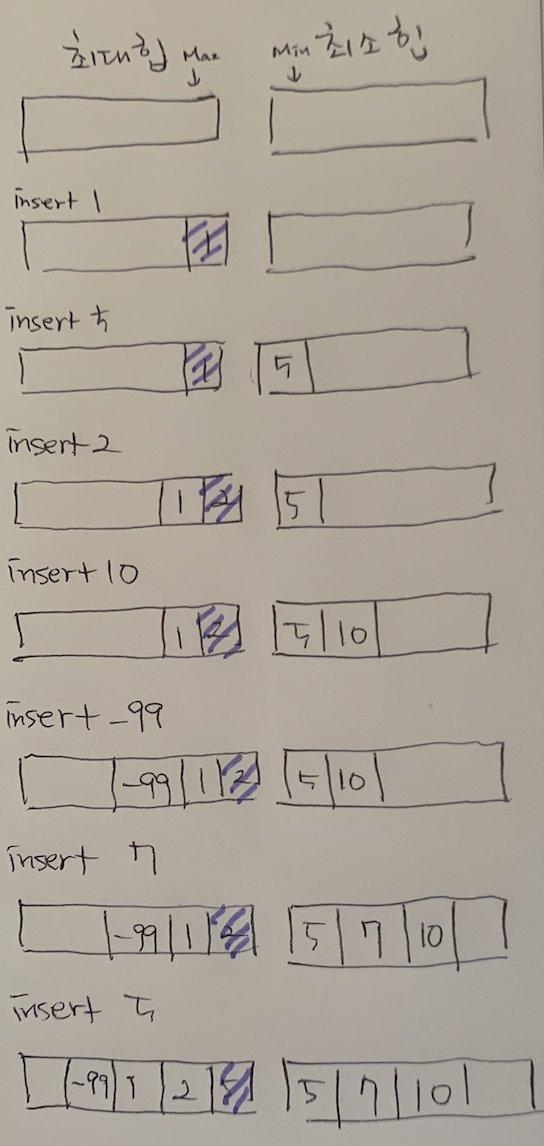 최대힙 Max Min 최소힙
↓ ↓
insert 1
1
insert 5
1 5
insert 2
1 2 5
insert 10
1 2 5 10
insert -99
-99 1 2 5 10
insert 7
-99 1 2 5 7 10
insert 5
-99 1 2 5 5 7 10